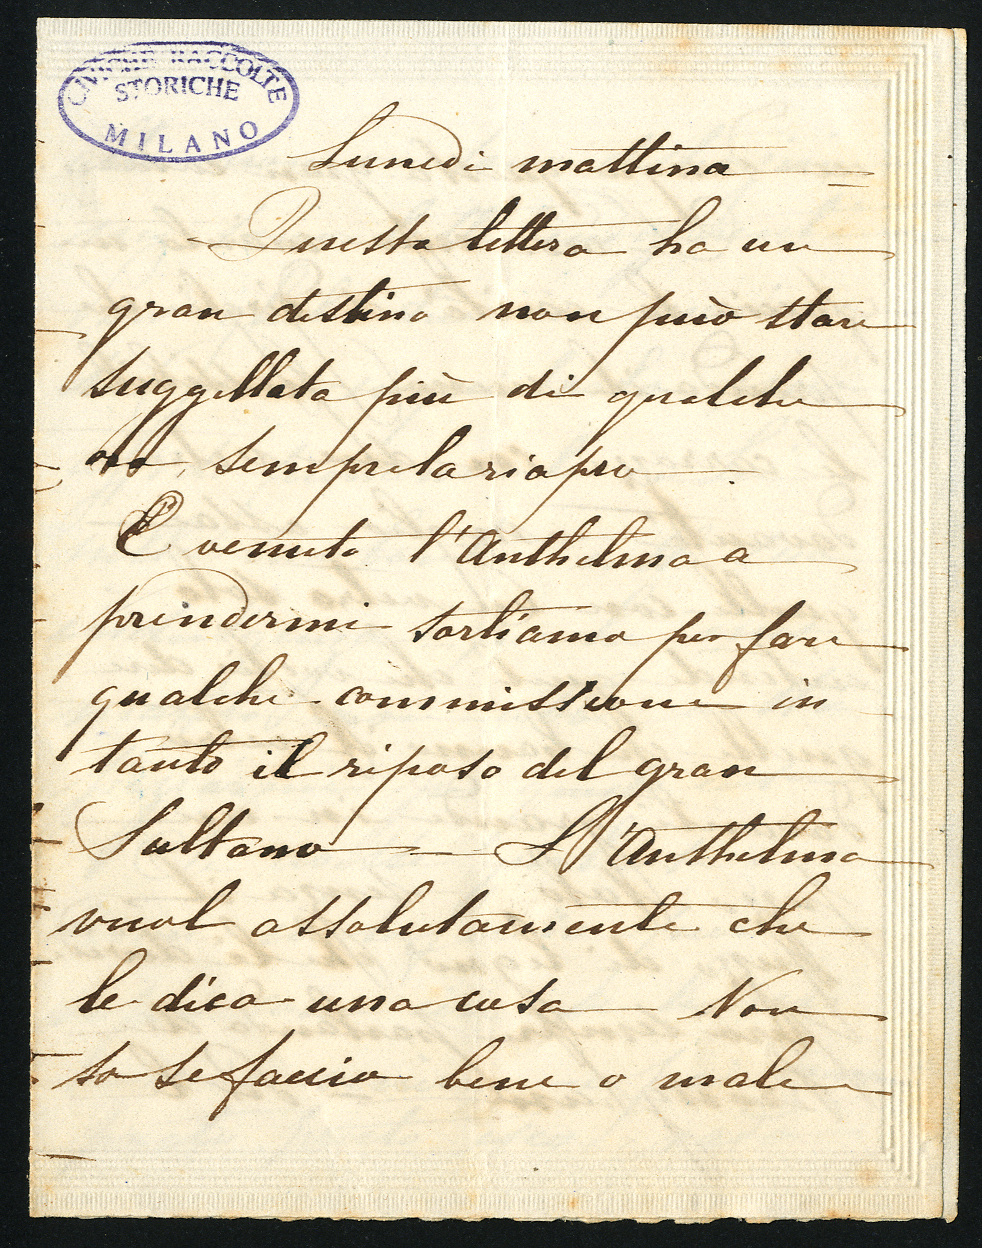 CIVICHE RACCOLTE
STORICHE
MILANO
Lunedi mattina
Questa lettera ha un
gran destino non può stare
suggellata più di qualche
ora, sempre la riapro
È venuta l'Anthelma a
prendermi sortiamo per fare
qualche commissione in
tanto il riposo del gran
Sultano — L'Anthelma
vuol assolutamente che
le dica una cosa — Non
so se faccio bene o male